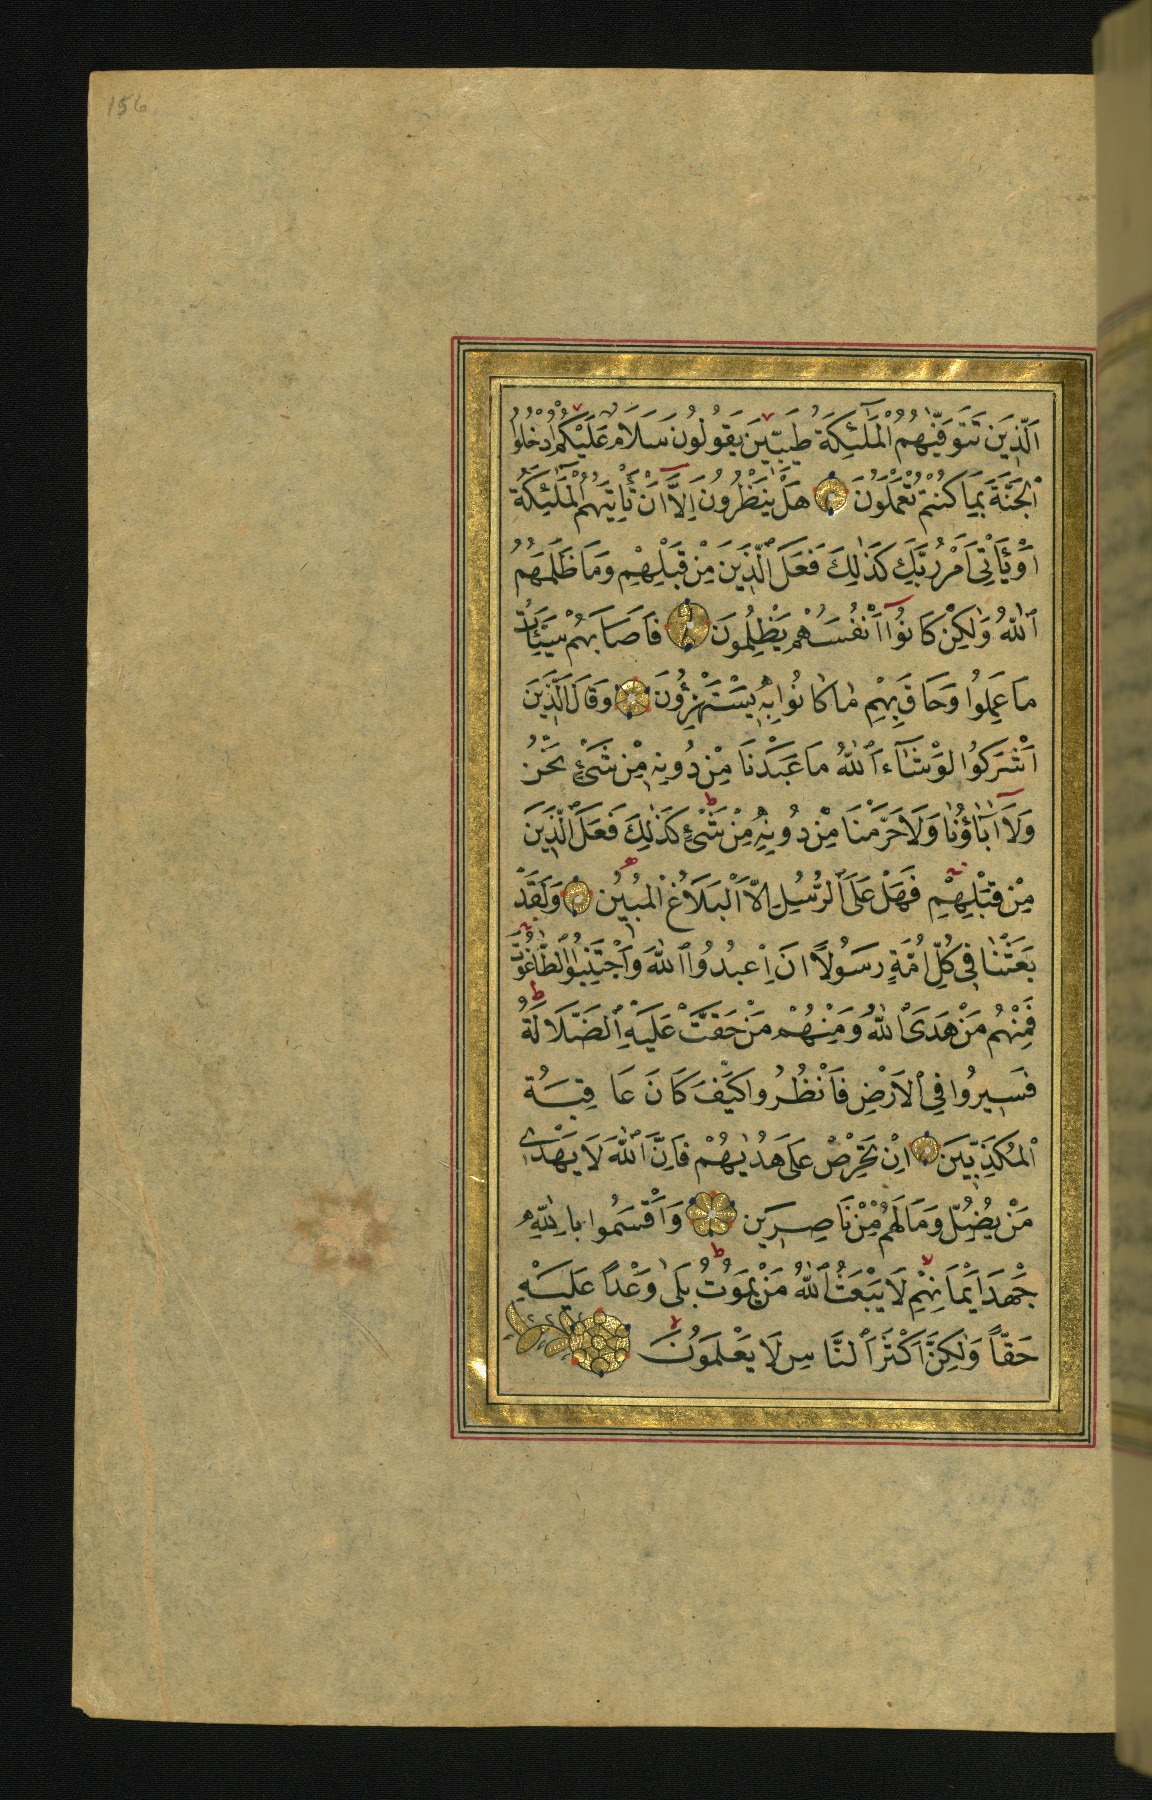 156
اَلَّذِينَ تَتَوَفّٰيهُمُ الْمَلٰٓئِكَةُ طَيِّبِينَ يَقُولُونَ سَلَامٌ عَلَيْكُمُ ادْخُلُوا
الْجَنَّةَ بِمَا كُنْتُمْ تَعْمَلُونَ هَلْ يَنْظُرُونَ اِلَّٓا اَنْ تَأْتِيَهُمُ الْمَلٰٓئِكَةُ
اَوْ يَأْتِىَ اَمْرُ رَبِّكَ كَذٰلِكَ فَعَلَ الَّذِينَ مِنْ قَبْلِهِمْ وَمَا ظَلَمَهُمُ
اللّٰهُ وَلٰكِنْ كَانُٓوا اَنْفُسَهُمْ يَظْلِمُونَ فَاَصَابَهُمْ سَيِّئَاتُ
مَا عَمِلُوا وَحَاقَ بِهِمْ مَا كَانُوا بِهِ يَسْتَهْزِؤُنَ وَقَالَ الَّذِينَ
اَشْرَكُوا لَوْ شَٓاءَ اللّٰهُ مَا عَبَدْنَا مِنْ دُونِهِ مِنْ شَىْءٍ نَحْنُ
وَلَٓا اٰبَاؤُنَا وَلَا حَرَّمْنَا مِنْ دُونِهِ مِنْ شَىْءٍ كَذٰلِكَ فَعَلَ الَّذِينَ
مِنْ قَبْلِهِمْ فَهَلْ عَلَى الرُّسُلِ اِلَّا الْبَلَاغُ الْمُبِينُ وَلَقَدْ
بَعَثْنَا فِى كُلِّ اُمَّةٍ رَسُولًا اَنِ اعْبُدُوا اللّٰهَ وَاجْتَنِبُوا الطَّاغُوتَ
فَمِنْهُمْ مَنْ هَدَى اللّٰهُ وَمِنْهُمْ مَنْ حَقَّتْ عَلَيْهِ الضَّلَالَةُ
فَسِيرُوا فِى الْاَرْضِ فَانْظُرُوا كَيْفَ كَانَ عَاقِبَةُ
الْمُكَذِّبِينَ اِنْ تَحْرِصْ عَلٰى هُدٰيهُمْ فَاِنَّ اللّٰهَ لَا يَهْدِى
مَنْ يُضِلُّ وَمَا لَهُمْ مِنْ نَاصِرِينَ وَاَقْسَمُوا بِاللّٰهِ
جَهْدَ اَيْمَانِهِمْ لَا يَبْعَثُ اللّٰهُ مَنْ يَمُوتُ بَلٰى وَعْدًا عَلَيْهِ
حَقًّا وَلٰكِنَّ اَكْثَرَ النَّاسِ لَا يَعْلَمُونَ